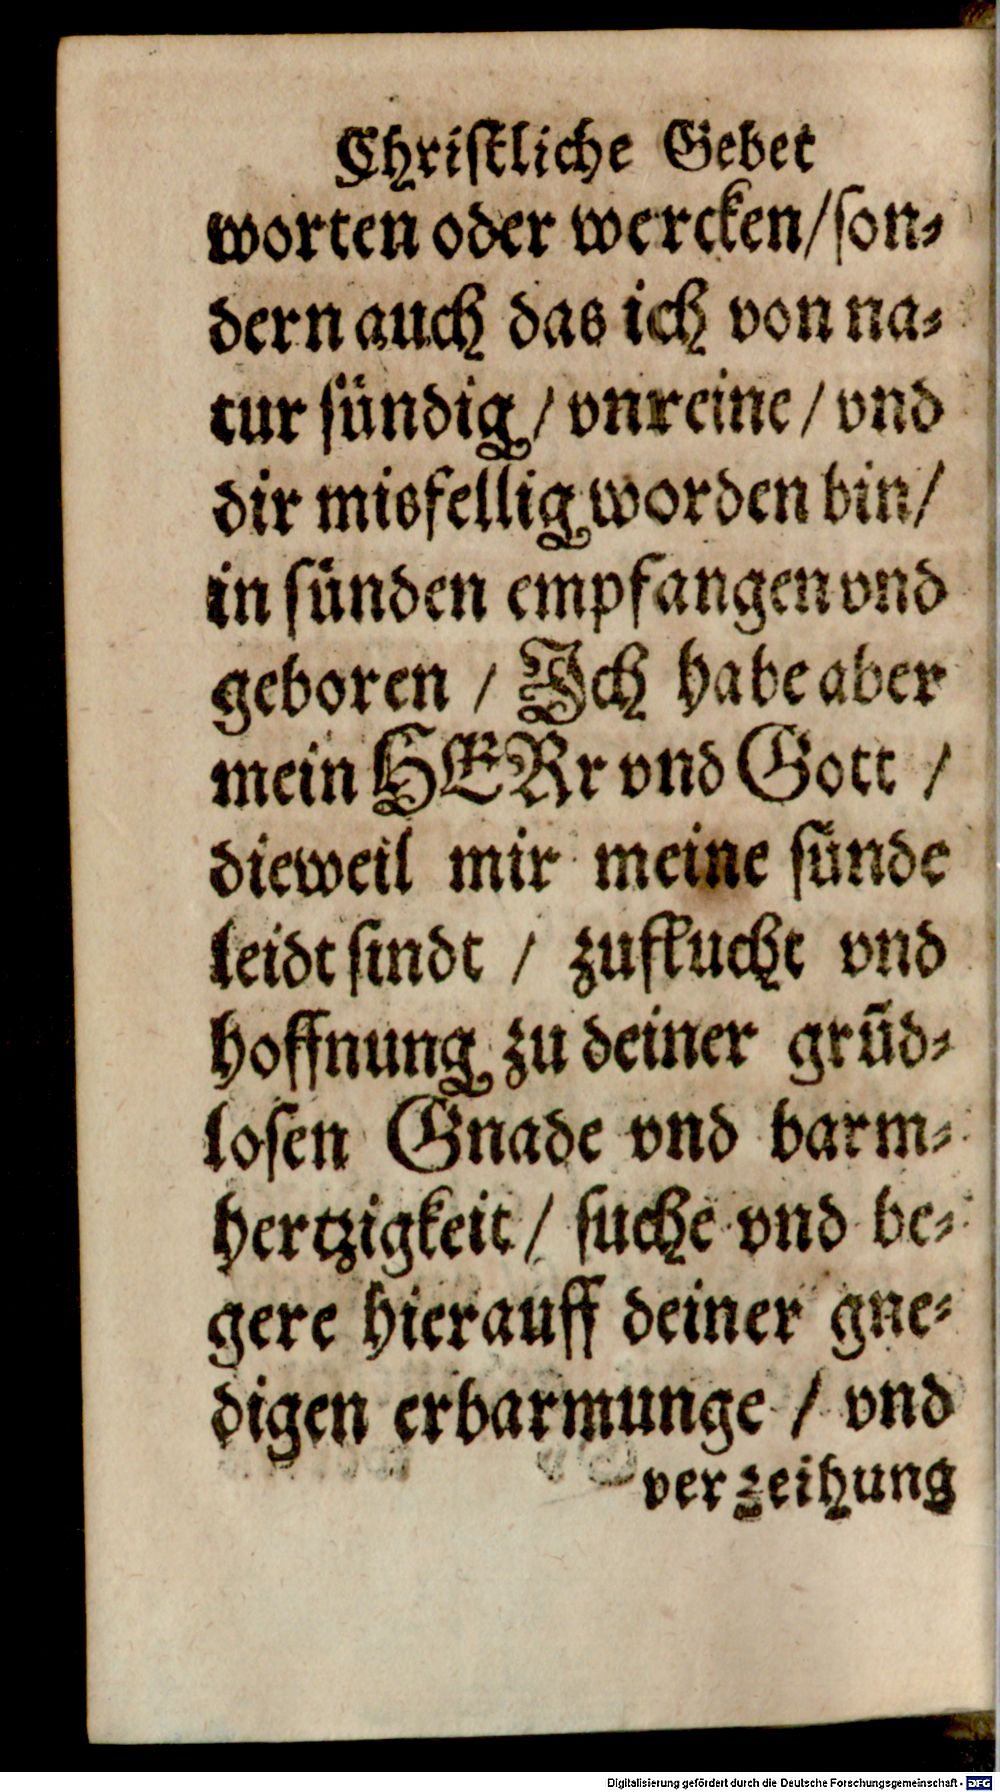 Chriſtliche Gebet
worten oder wercken/ſon⸗
dern auch das ich von na⸗
tur ſündig / vnreine / vnd
dir misfellig worden bin/
in ſünden empfangen vnd
geboren / Ich habe aber
mein HERr vnd Gott /
dieweil mir meine ſünde
leidt ſindt / zuflucht vnd
hoffnung zu deiner grūd⸗
loſen Gnade vnd barm⸗
hertzigkeit / ſuche vnd be⸗
gere hierauff deiner gne⸗
digen erbarmunge / vnd
verzeihung
Digitalisierung gefördert durch die Deutsche Forschungsgemeinschaft - DFG